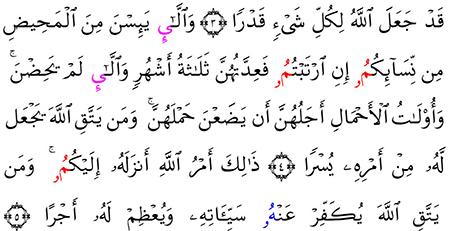 قَدْ جَعَلَ اَللَّهُ لِكُلِّ شَيْءٖ قَدْرٗا ۝٣ وَاَلَّٰٓيِ يَئِسْنَ مِنَ اَلْمَحِيضِ
مِن نِّسَآئِكُمُۥٓ إِنِ اِرْتَبْتُمُۥ فَعِدَّتُهُنَّ ثَلَٰثَةُ أَشْهُرٖ وَاَلَّٰٓيِ لَمْ يَحِضْنَۚ
وَأُوْلَٰتُ اُلْأَحْمَالِ أَجَلُهُنَّ أَن يَضَعْنَ حَمْلَهُنَّۚ وَمَن يَتَّقِ اِللَّهَ يَجْعَل
لَّهُۥ مِنْ أَمْرِهِۦ يُسْرٗا ۝٤ ذَٰلِكَ أَمْرُ اُللَّهِ أَنزَلَهُۥ إِلَيْكُمُۥۚ وَمَن
يَتَّقِ اِللَّهَ يُكَفِّرْ عَنْهُۥ سَيِّـَٔاتِهِۦ وَيُعْظِمْ لَهُۥ أَجْرًا ۝٥